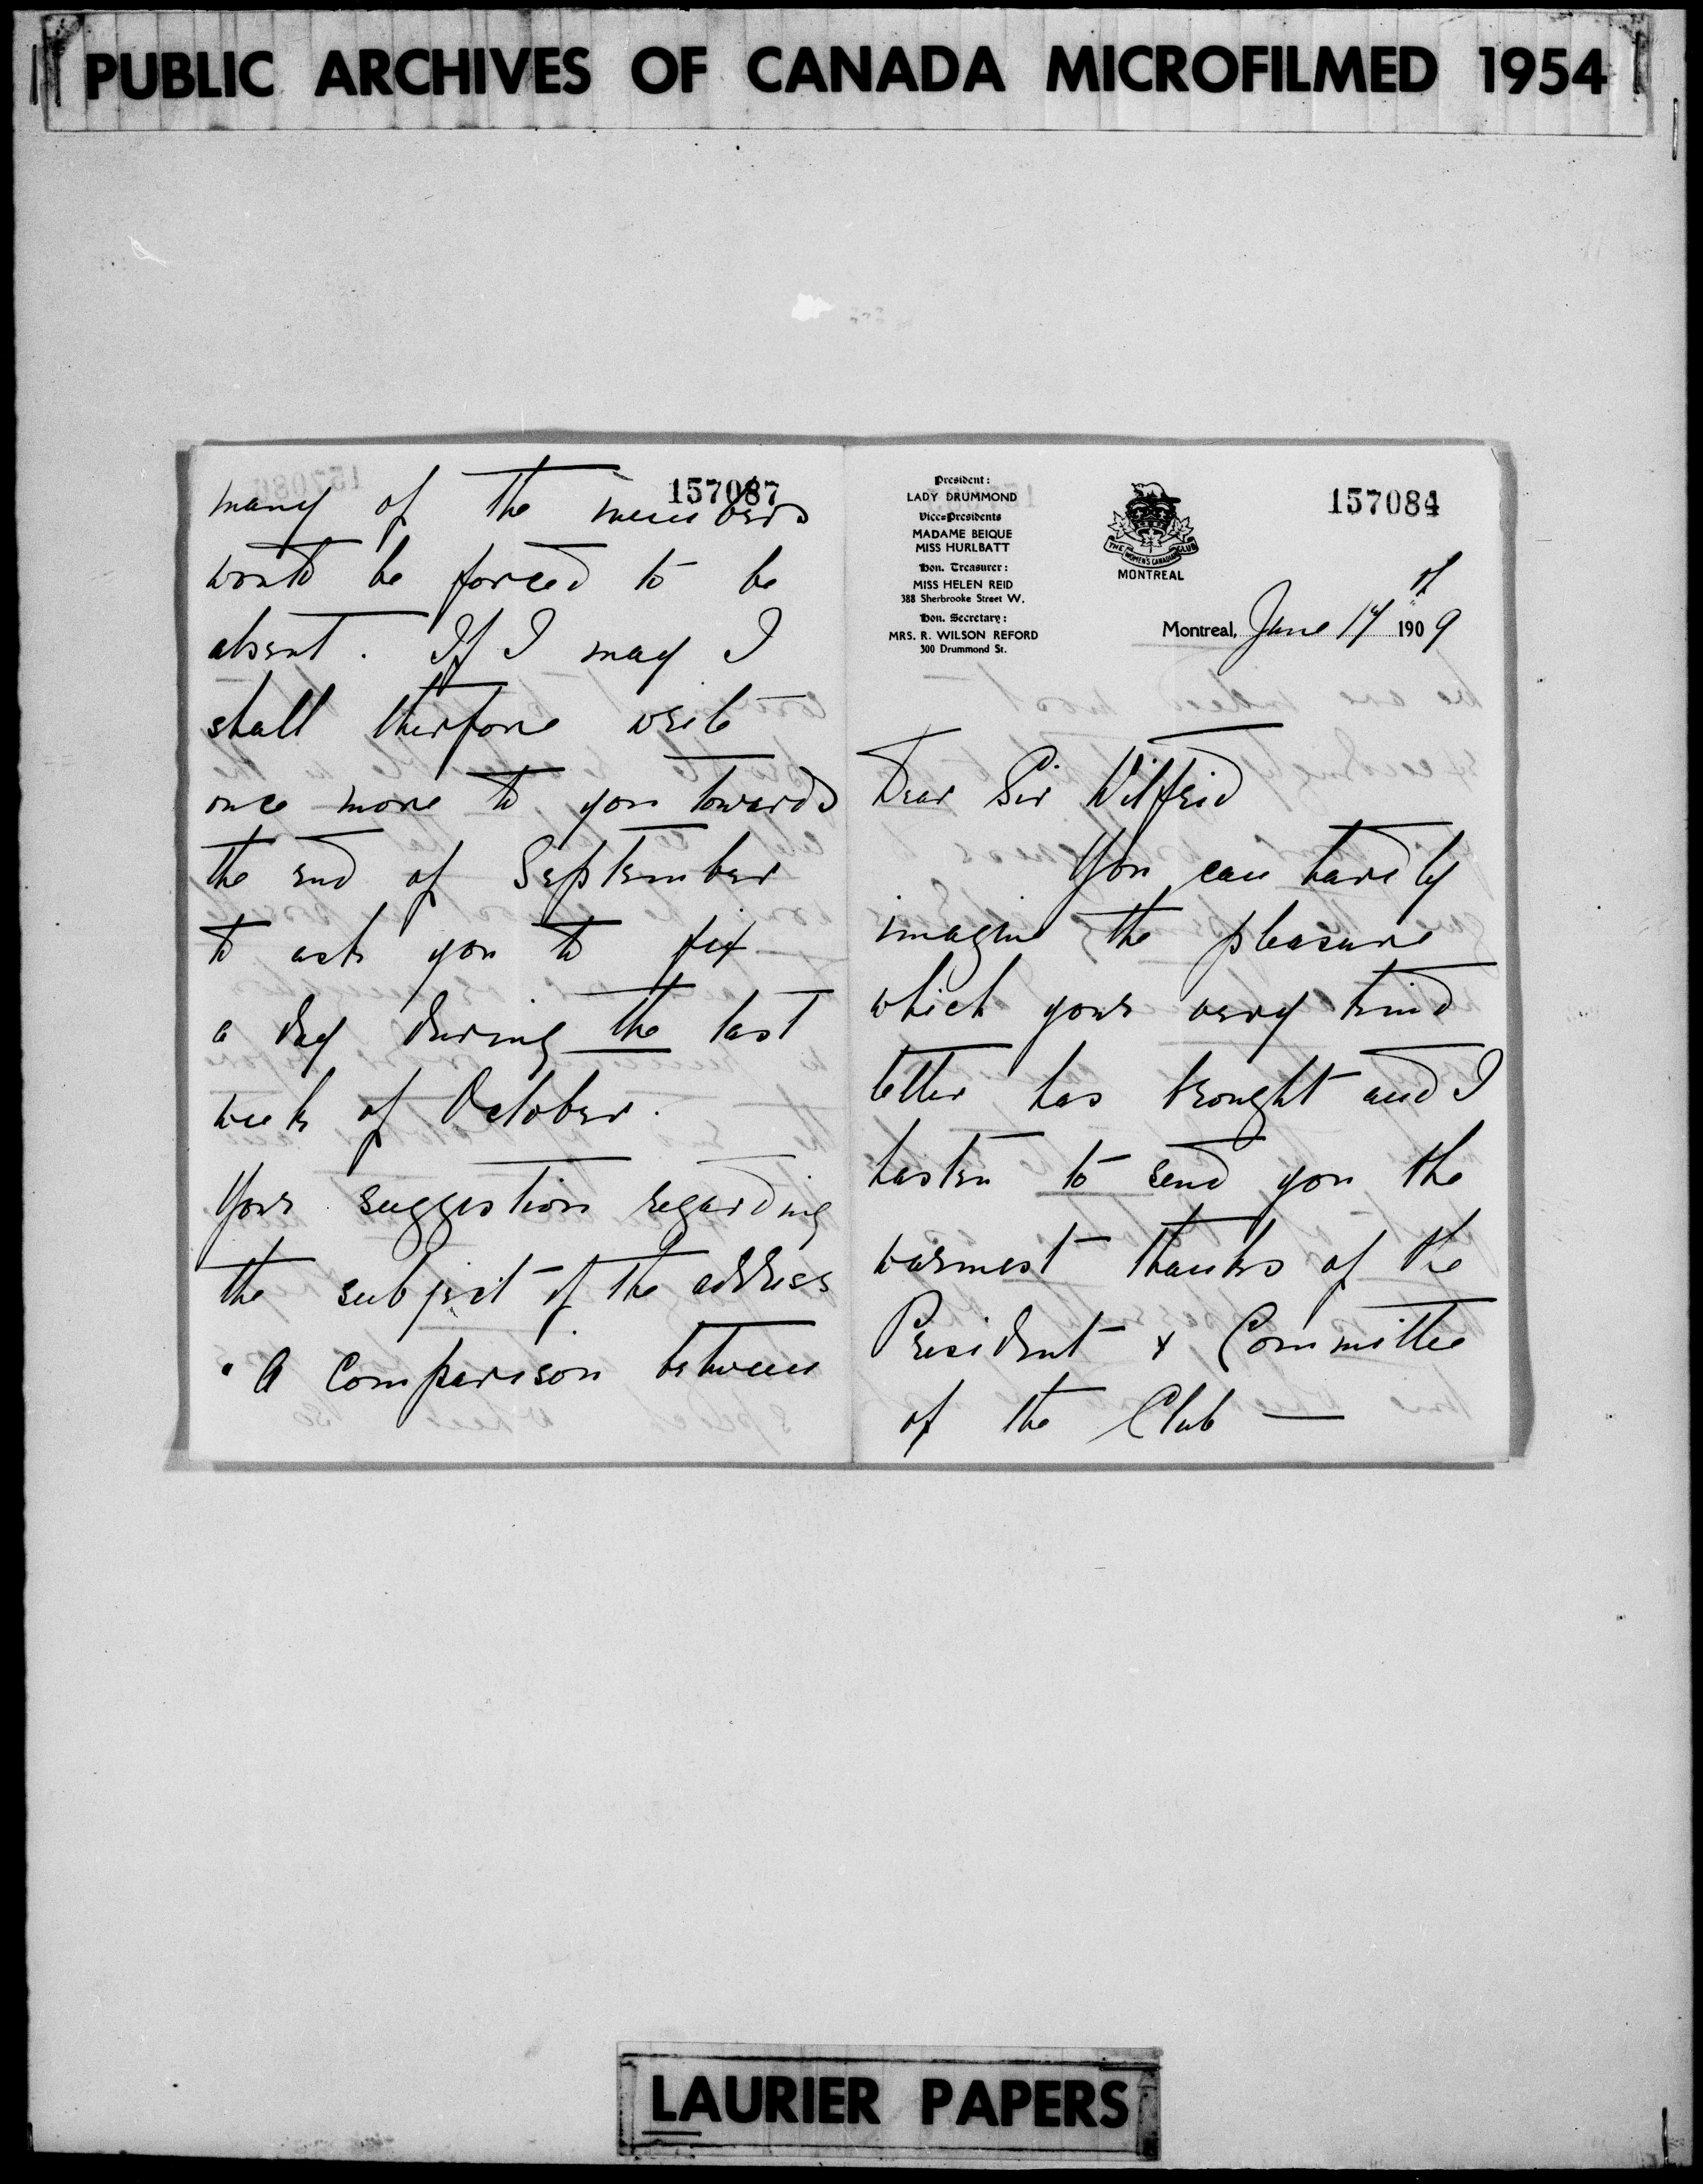 PUBLIC ARCHIVES OF CANADA MICROFILMED 1954
157087
many of the members
would be forced to be
absent. If I may I
shall therfore write
once more to you towards
the end of September
to ask you to fix
a day during the last
week of October.
Your suggestion regarding
the subject of the address
"A Comparison between
President:
LADY DRUMMOND
Vice-Presidents
MADAME BEIQUE
MISS HURLBATT
Hon. Treasurer:
MISS HELEN REID
388 Sherbrooke Street W.
Hon. Secretary:
MRS. R. WILSON REFORD
300 Drummond St.
THE WOMEN'S CANADIAN CLUB
MONTREAL
157084
Montreal, June 14th 1909
Dear Sir Wilfrid
You can hardly
imagine the pleasure
which your very kind
letter has brought and I
hasten to send you the
warmest thanks of the
President & Committee
of the Club —
LAURIER PAPERS